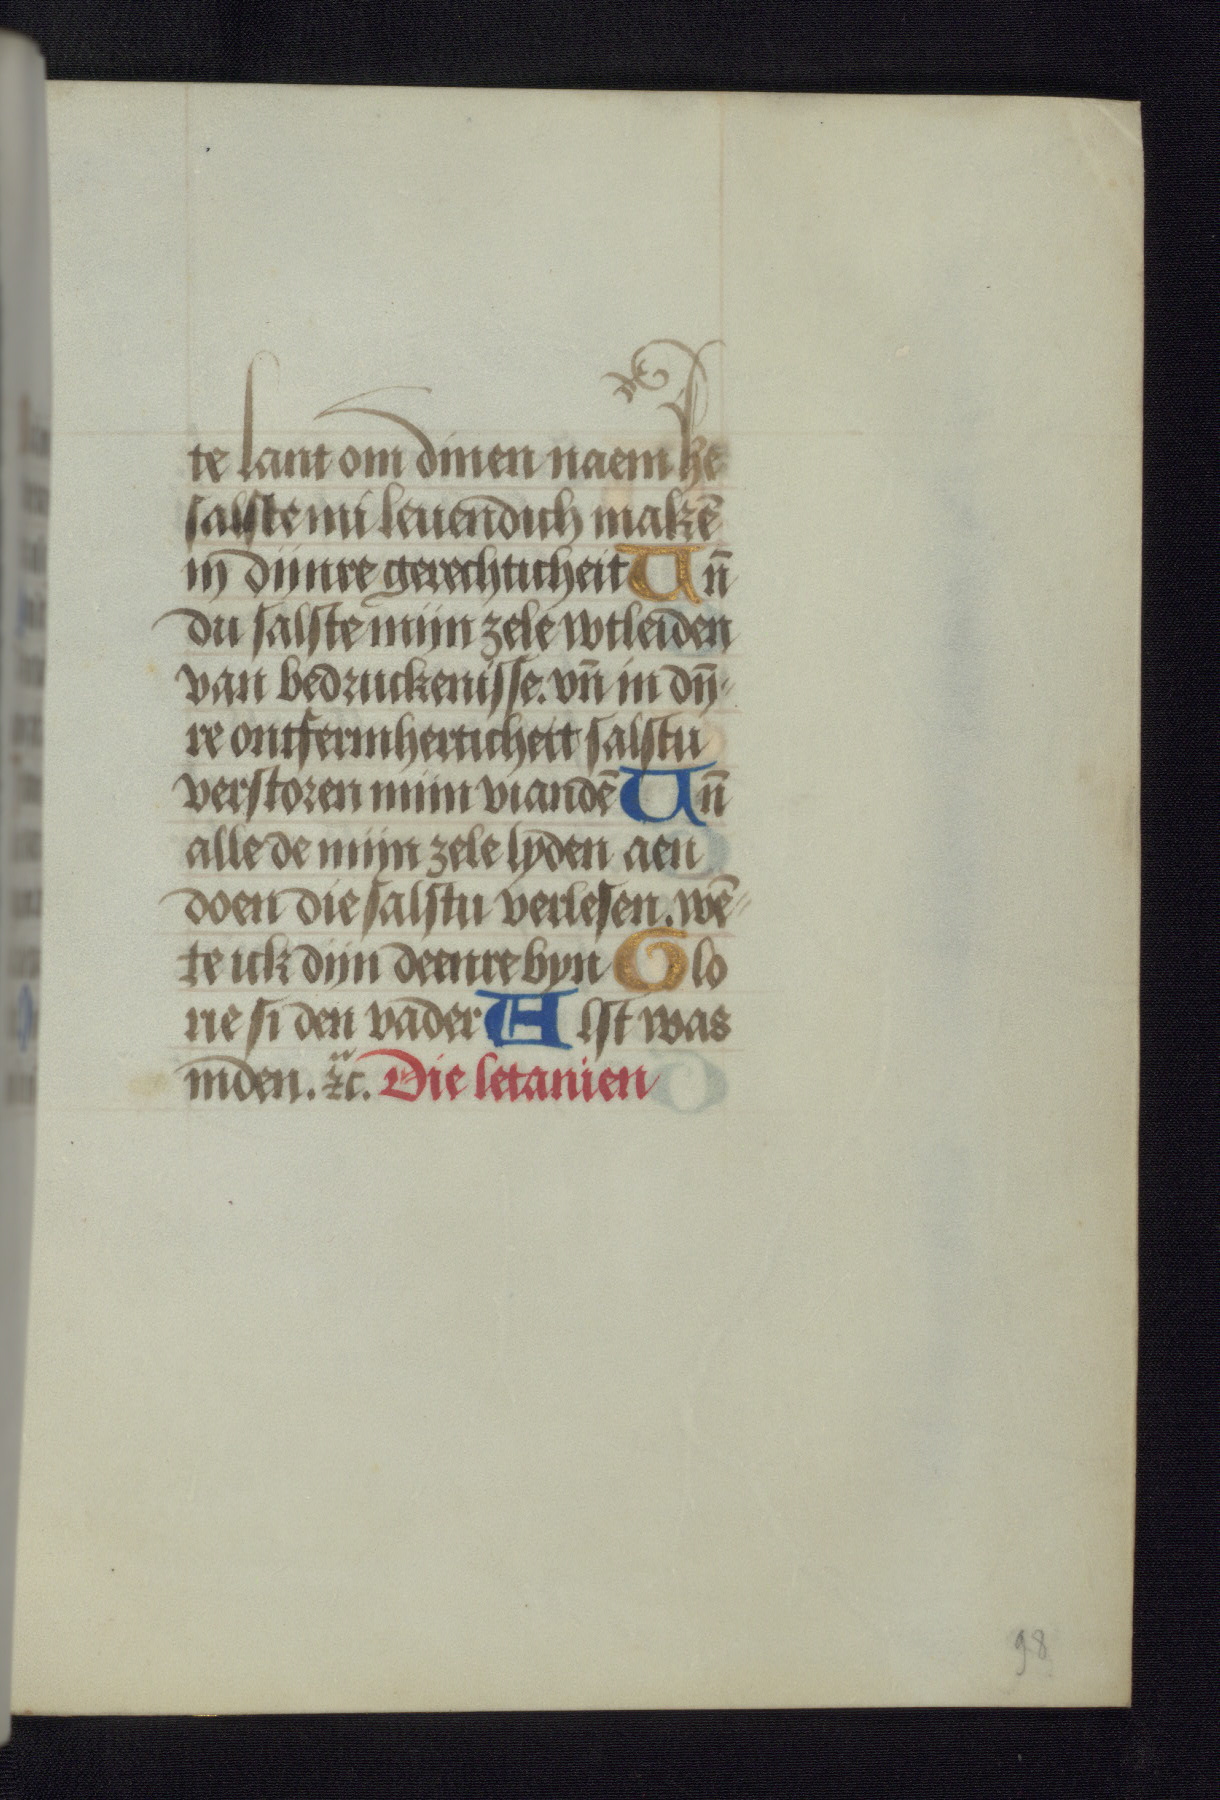 te lant om dinen naem he
salste mi leuendich makē
in dijnre gerechticheit Vn̄
du salste mijn zele wtleiden
van bedruckenisse. vn̄ in dij-
re ontfermherticheit salstu
verstoren mijn viandē Vn̄
alle de mijn zele lyden aen
doen die salstu verlesen. wē-
te ick dijn deenre byn Glo
rie si den vader Alst was
inden. ⁊c. Die letanien
98